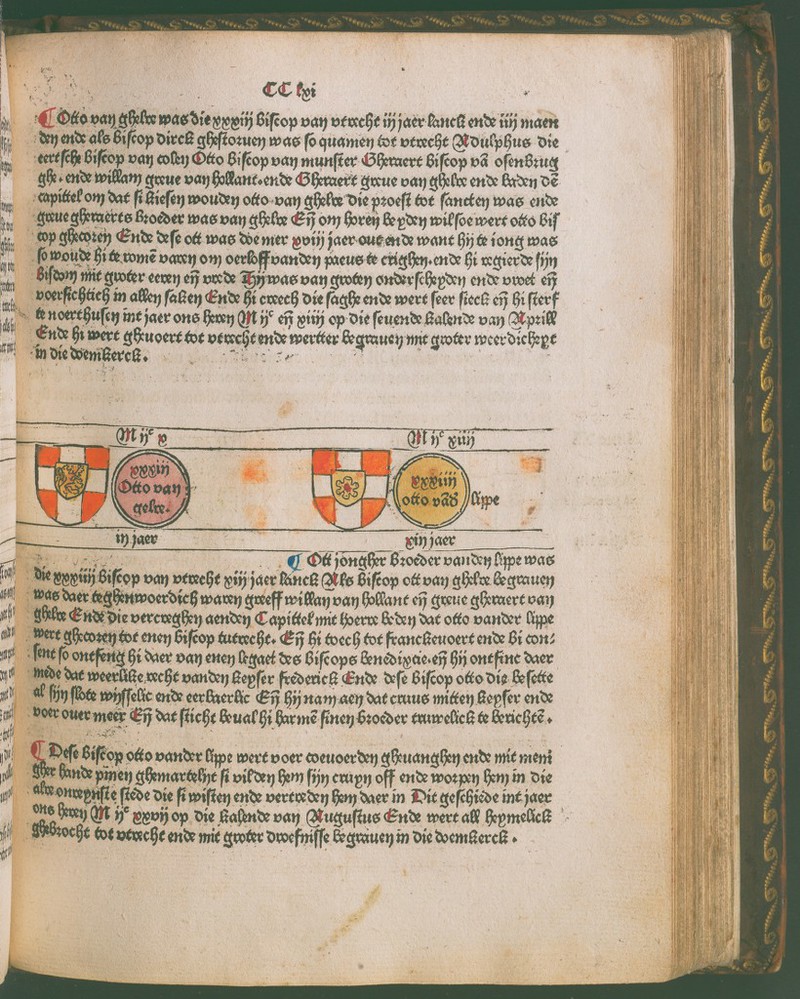 CC lxi
Otto van ghelre was die xxxiij biscop van vtrecht iij jaer lanck ende iiij maen
den ende als biscop dirck ghestoruen was so quamen tot vtrecht Adulphus die
eertsche biscop van colen Otto biscop van munster Gheraert biscop vā osenbrug
ghe. ende willam greue van hollant. ende Gheraert greue van ghelre ende baden dē
capittel om dat si kiesen wouden otto van ghelre die proest tot sancten was ende
greue gheraerts broeder was van ghelre Eñ om horen beyden wil soe wert otto bis
cop ghecoren Ende dese ott was doe mer xviij jaer out ende want hij te iong was
so woude hi te romē varen om oerloff vanden paeus te crighen. ende hi regierde sijn
bisdom mit groter eeren eñ vrede Hij was van groten onderscheyden ende vroet eñ
voersichtich in allen saken Ende hi creech die saghe ende wert seer sieck eñ hi sterf
te noerthusen int jaer ons heren M ijc eñ xiiij op die seuende kalende van Aprill
Ende hi wert gheuoert tot vtrecht ende wertter begrauen mit groter weerdicheyt
in die doemkerck.
M ijc x
M ijc xiiij
xxxiij
Otto van
gelre.
xxxiiij
otto vād
lippe
iij jaer
xiij jaer
Ott jongher broeder vanden lipe was
die xxxiiij biscop van vtrecht xiij jaer lanck Als biscop ott van ghelre begrauen
was daer teghenwoerdich waren greeff willam van hollant eñ greue gheraert van
ghelre Ende die vercreghen aenden Capittel mit hoerre beden dat otto vander lippe
wert ghecoren tot enen biscop tutrecht. Eñ hi toech tot franckeuoert ende bi con
sent so ontfeng hi daer van enen legaet des biscops benedixcie. eñ hij ontfinc daer
mede dat weerlike recht vanden keyser frederick Ende dese biscop otto die besette
al sijn slote wijsselic ende eerbaerlic Eñ hij nam aen dat cruus mitten keyser ende
voer ouer meer Eñ dat sticht beual hi harmē sinen broeder truwelick te berichtē.
Dese biscop otto vander lippe wert voer coeuoerden gheuanghen ende mit meni
gher hande pinen ghemartelijt si vilden hem sijn cruyn off ende worpen hem in die
alre onreynste stede die si wisten ende vertreden hem daer in Dit geschiede int jaer
ons heren M ijc xxvij op die kalende van Augustus Ende wert all heymelick
ghebrocht tot vtrecht ende mit groter droefnisse begrauen in die doemkerck.